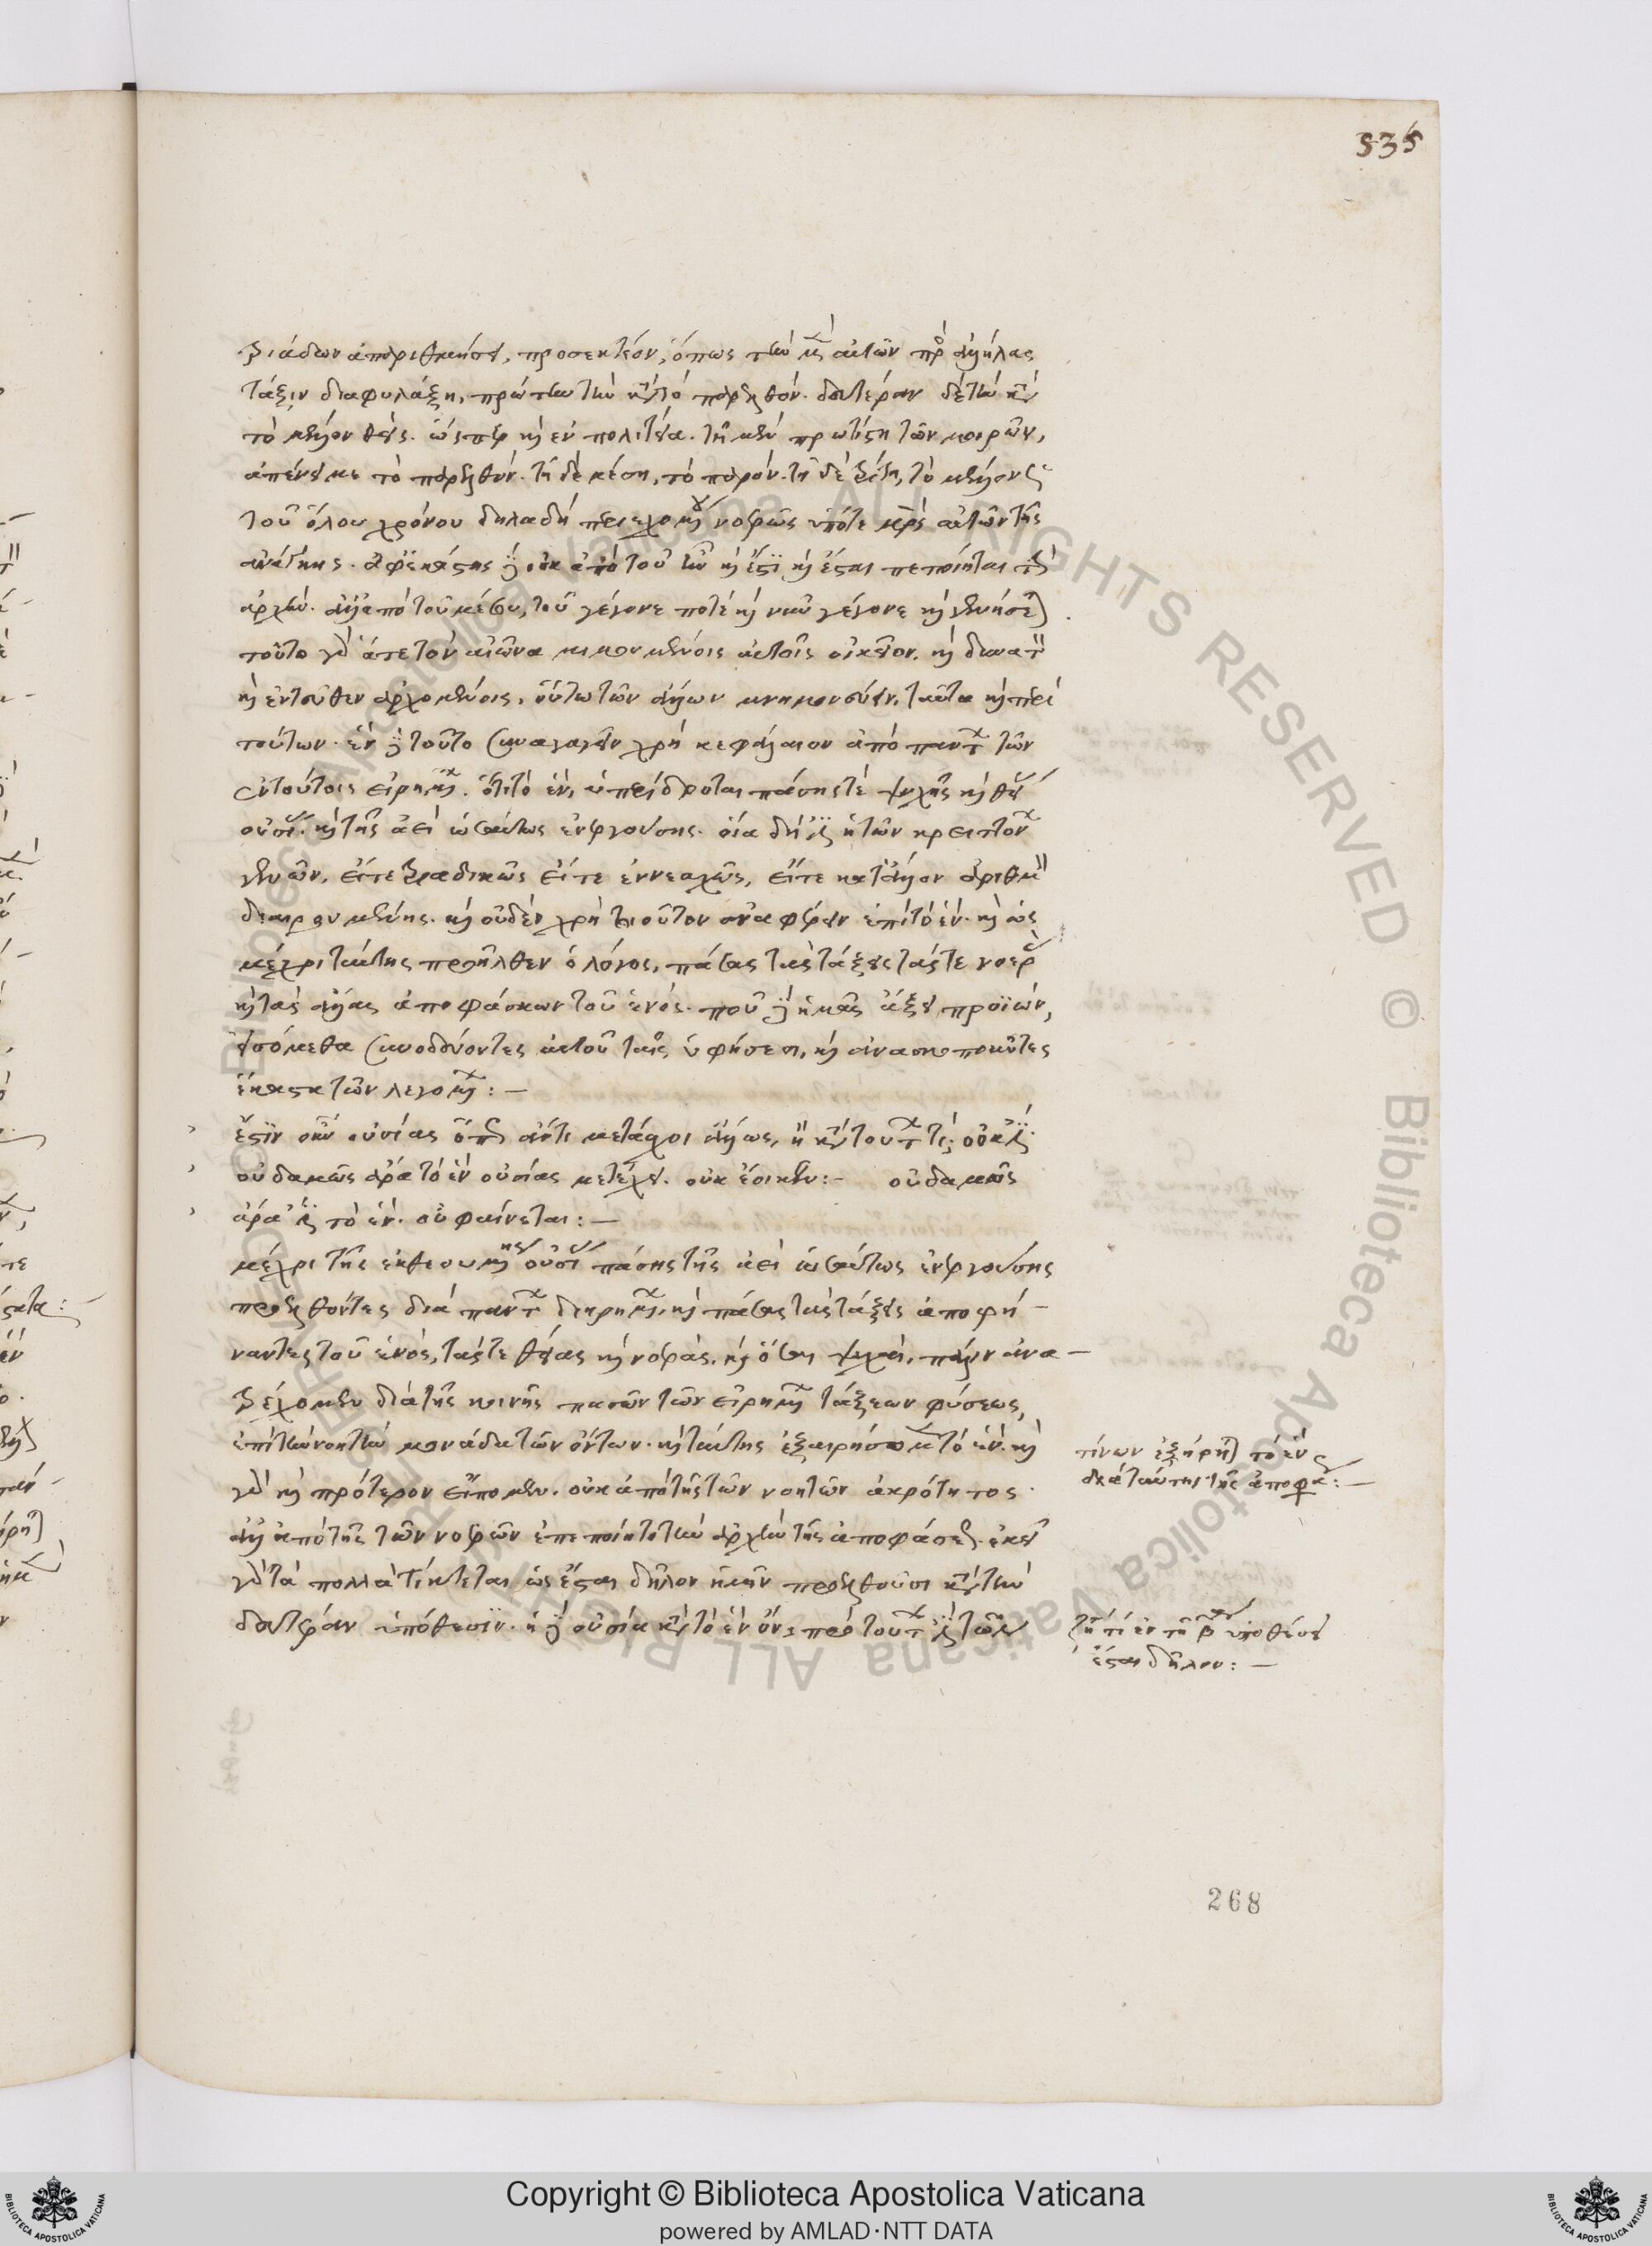 535
τριάδων ἀπαριθμήσει, προσεκτέον, ὅπως τὴν μὲν αὐτῶν πρὸς ἀλλήλας
τάξιν διαφυλάξῃ, πρώτην τὴν κατὰ τὸ παρελθόν. δευτέραν δὲ τὴν κατὰ
τὸ μέλλον θείς. ὥσπερ καὶ ἐν πολιτείᾳ. τῇ μὲν πρωτίστῃ τῶν μοιρῶν,
ἀπένειμε τὸ παρελθόν. τῇ δὲ μέσῃ, τὸ παρόν. τῇ δὲ τρίτῃ, τὸ μέλλον
τοῦ ὅλου χρόνου δηλαδὴ περιεχομένου νοερῶς ὑπό τε μητρὸς αὐτῶν τῆς
ἀνάγκης. ἀφ' ἑκάστης δὲ οὐκ ἀπὸ τοῦ ἦν καὶ ἔστι καὶ ἔσται πεποίηται τὴν
ἀρχήν. ἀλλ' ἀπὸ τοῦ μέσου, τοῦ γέγονε ποτὲ καὶ νῦν γέγονε καὶ γενήσεται
τοῦτο γὰρ ἅτε τὸν αἰῶνα μιμουμένοις αὐτοῖς οἰκεῖον. καὶ δυνατὸν
καὶ ἐντεῦθεν ἀρχομένοις, οὕτω τῶν ἄλλων μνημονεύειν. ταῦτα καὶ περὶ
τούτων. ἓν δὲ τοῦτο συναγαγεῖν χρὴ κεφάλαιον ἀπὸ πάντων τῶν
ἐν τούτοις εἰρημένων. ὅτι τὸ ἕν, ὑπερίδρυται πάσης τε ψυχῆς καὶ θείας
οὐσίας. καὶ τῆς ἀεὶ ὡσαύτως ἐνεργούσης. οἵα δή ἐστιν ἡ τῶν κρειττόνων
γενῶν, εἴτε τριαδικῶς εἴτε ἐννεαχῶς, εἴτε κατ' ἄλλον ἀριθμὸν
διαιρουμένης. καὶ οὐδὲν χρὴ τοιοῦτον ἀναφέρειν ἐπὶ τὸ ἕν. καὶ ὡς
μέχρι ταύτης προῆλθεν ὁ λόγος, πάσας τὰς τάξεις τάς τε νοερὰς
καὶ τὰς ἄλλας ἀποφάσκων τοῦ ἑνός. ποῦ δὲ ἡμᾶς ἄξει προϊών,
εἰσόμεθα συνοδεύοντες αὐτοῦ ταῖς ὑφηγήσεσι, καὶ ἀνασκοποῦντες
ἕκαστα τῶν λεγομένων: —
ἔστιν οὖν οὐσίας ὅπως ἄν τι μετάσχοι ἄλλως, ἢ κατὰ τούτων τί; οὐκ ἔστιν.
οὐδαμῶς ἄρα τὸ ἓν οὐσίας μετέχει. οὐκ ἔοικεν: — οὐδαμῶς
ἄρα ἔστι τὸ ἕν. οὐ φαίνεται: —
μέχρι τῆς ἐκθεουμένης οὐσίας πάσης τῆς ἀεὶ ὡσαύτως ἐνεργούσης
προελθόντες διὰ πάντων διῃρημένως. καὶ πάσας τὰς τάξεις ἀποφή-
ναντες τοῦ ἑνός, τάς τε θείας καὶ νοεράς. καὶ ὅσαι ψυχαί. πάλιν ἀνα-
τρέχομεν διὰ τῆς κοινῆς πασῶν τῶν εἰρημένων τάξεων φύσεως,
ἐπὶ τὴν νοητὴν μονάδα τῶν ὄντων. καὶ ταύτης ἐξαιρήσομεν τὸ ἕν. καὶ
γὰρ καὶ πρότερον εἴπομεν. οὐκ ἀπὸ τῆς τῶν νοητῶν ἀκρότητος.
ἀλλ' ἀπὸ τῆς τῶν νοερῶν ἐπεποίητο τὴν ἀρχὴν τῆς ἀποφάσεως. ἐκεῖ
γὰρ τὰ πολλὰ τίκτεται ὡς ἔσται δῆλον ἡμῖν προελθοῦσι κατὰ τὴν
δευτέραν ὑπόθεσιν. ἡ δὲ οὐσία κατὰ τὸ ἓν ὄν, πρὸ τούτων ἐστὶ τῶν
τίνων ἐξῄρηται τὸ ἓν
διὰ ταύτης τῆς ἀποφάσεως: —
ὅτι ἐν τῇ β ὑποθέσει
ἔσται δῆλον: —
268
Copyright © Biblioteca Apostolica Vaticana
powered by AMLAD·NTT DATA